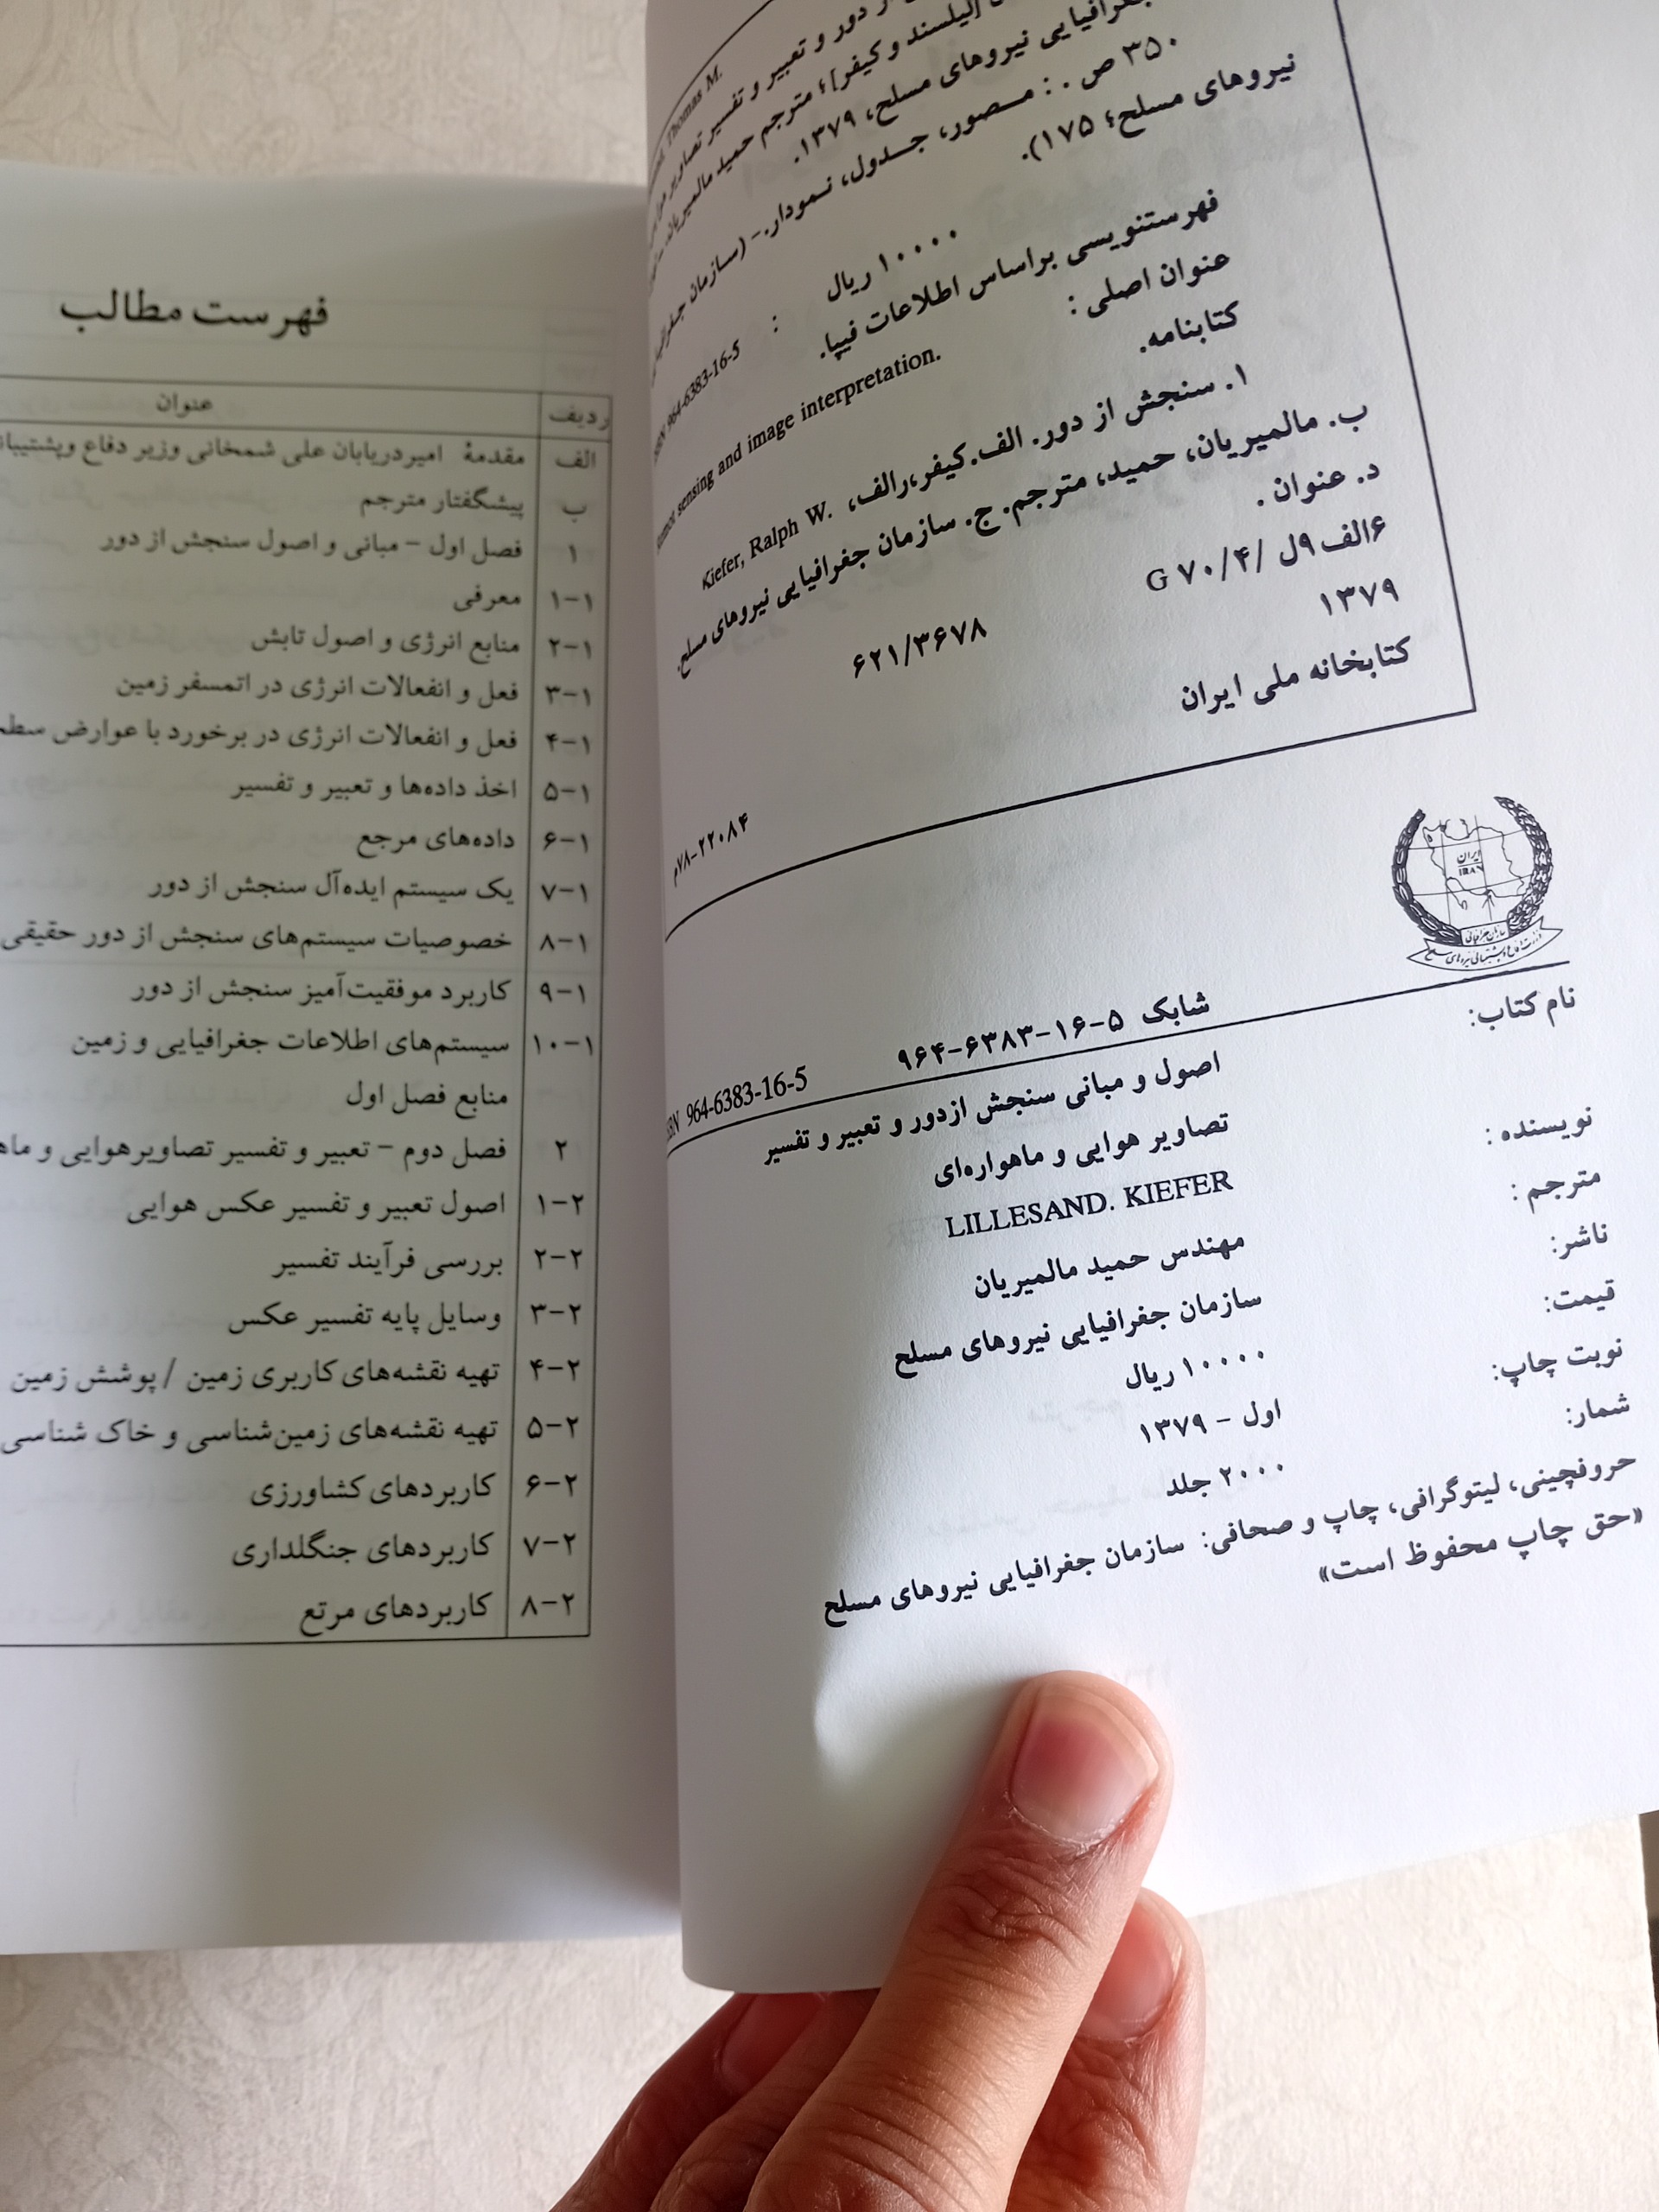 Thomas M.
دور و تعبیر و تفسیر تصاویر
لیلسند و کیفر]؛ مترجم حمید مالمیریان
جغرافیایی نیروهای مسلح، ۱۳۷۹.
۳۵۰ ص. : مصور، جدول، نمودار.- (سازمان جغرافیایی
نیروهای مسلح؛ ۱۷۵).
ISBN 964-6383-16-5 : ۱۰۰۰۰ ریال
فهرستنویسی براساس اطلاعات فیپا.
عنوان اصلی :
sensing and image interpretation.
کتابنامه.
۱. سنجش از دور. الف.کیفر،رالف، Kiefer, Ralph W.
ب. مالمیریان، حمید، مترجم. ج. سازمان جغرافیایی نیروهای مسلح.
د. عنوان .
۶الف۹ل /G ۷۰/۴
۱۳۷۹
۶۲۱/۳۶۷۸
کتابخانه ملی ایران
۷۸-۲۲۰۸۴م
ایران
IRAN
سازمان جغرافیائی
وزارت دفاع و پشتیبانی نیروهای مسلح
شابک ۵-۱۶-۶۳۸۳-۹۶۴
964-6383-16-5
نام کتاب: اصول و مبانی سنجش ازدور و تعبیر و تفسیر
تصاویر هوایی و ماهواره‌ای
نویسنده : LILLESAND. KIEFER
مترجم : مهندس حمید مالمیریان
ناشر: سازمان جغرافیایی نیروهای مسلح
قیمت: ۱۰۰۰۰ ریال
نوبت چاپ: اول - ۱۳۷۹
شمار: ۲۰۰۰ جلد
حروفچینی، لیتوگرافی، چاپ و صحافی: سازمان جغرافیایی نیروهای مسلح
«حق چاپ محفوظ است»
فهرست مطالب
ردیف عنوان
الف مقدمهٔ امیردریابان علی شمخانی وزیر دفاع
ب پیشگفتار مترجم
۱ فصل اول – مبانی و اصول سنجش از دور
۱-۱ معرفی
۲-۱ منابع انرژی و اصول تابش
۳-۱ فعل و انفعالات انرژی در اتمسفر زمین
۴-۱ فعل و انفعالات انرژی در برخورد با عوارض
۵-۱ اخذ داده‌ها و تعبیر و تفسیر
۶-۱ داده‌های مرجع
۷-۱ یک سیستم ایده‌آل سنجش از دور
۸-۱ خصوصیات سیستم‌های سنجش از دور حقیقی
۹-۱ کاربرد موفقیت‌آمیز سنجش از دور
۱۰-۱ سیستم‌های اطلاعات جغرافیایی و زمین
منابع فصل اول
۲ فصل دوم – تعبیر و تفسیر تصاویرهوایی و
۱-۲ اصول تعبیر و تفسیر عکس هوایی
۲-۲ بررسی فرآیند تفسیر
۳-۲ وسایل پایه تفسیر عکس
۴-۲ تهیه نقشه‌های کاربری زمین / پوشش زمین
۵-۲ تهیه نقشه‌های زمین‌شناسی و خاک شناسی
۶-۲ کاربردهای کشاورزی
۷-۲ کاربردهای جنگلداری
۸-۲ کاربردهای مرتع